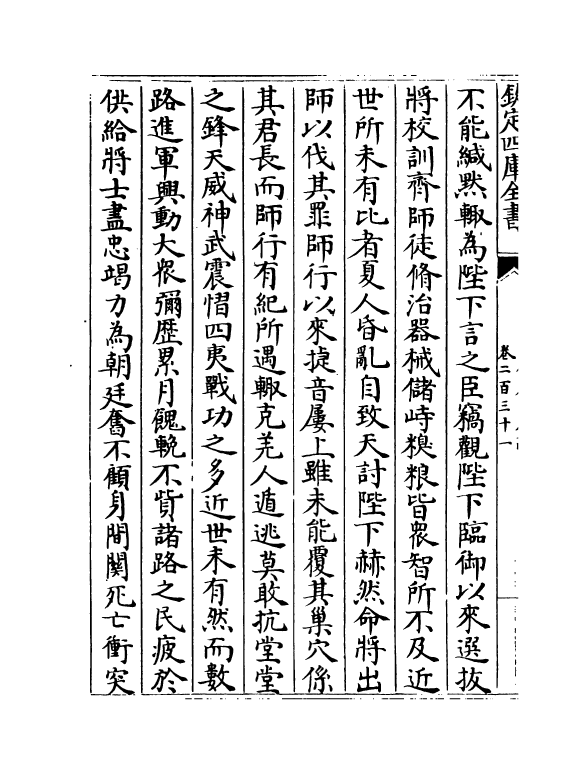 欽定四庫全書
卷二百三十一
不能緘黙輙為陛下言之臣竊觀陛下臨御以來選抜
將校訓齊師徒脩治器械儲峙糗粮皆衆智所不及近
世所未有比者夏人昏亂自致天討陛下赫然命將出
師以伐其罪師行以來捷音屢上雖未能覆其巢穴係
其君長而師行有紀所遇輙克羌人遁逃莫敢抗堂堂
之鋒天威神武震慴四夷戰功之多近世未有然而數
路進軍興動大衆彌歴累月餽輓不貲諸路之民疲於
供給將士盡忠竭力為朝廷奮不顧身間關死亡衝突